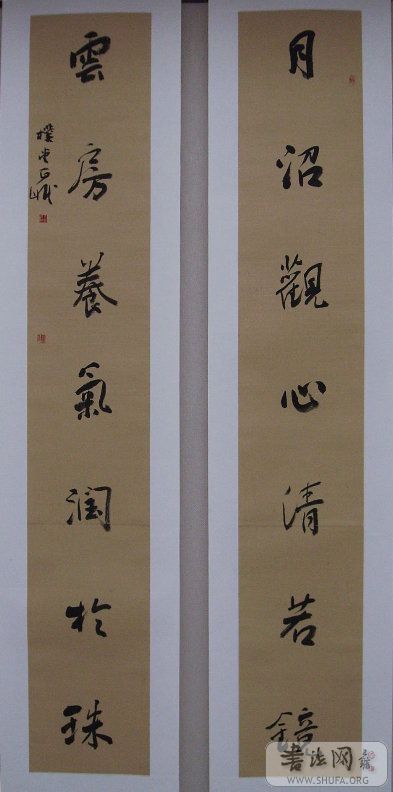 月沼觀心清若鏡
雲房養氣润於珠
書法网
WWW.SHUFA.ORG